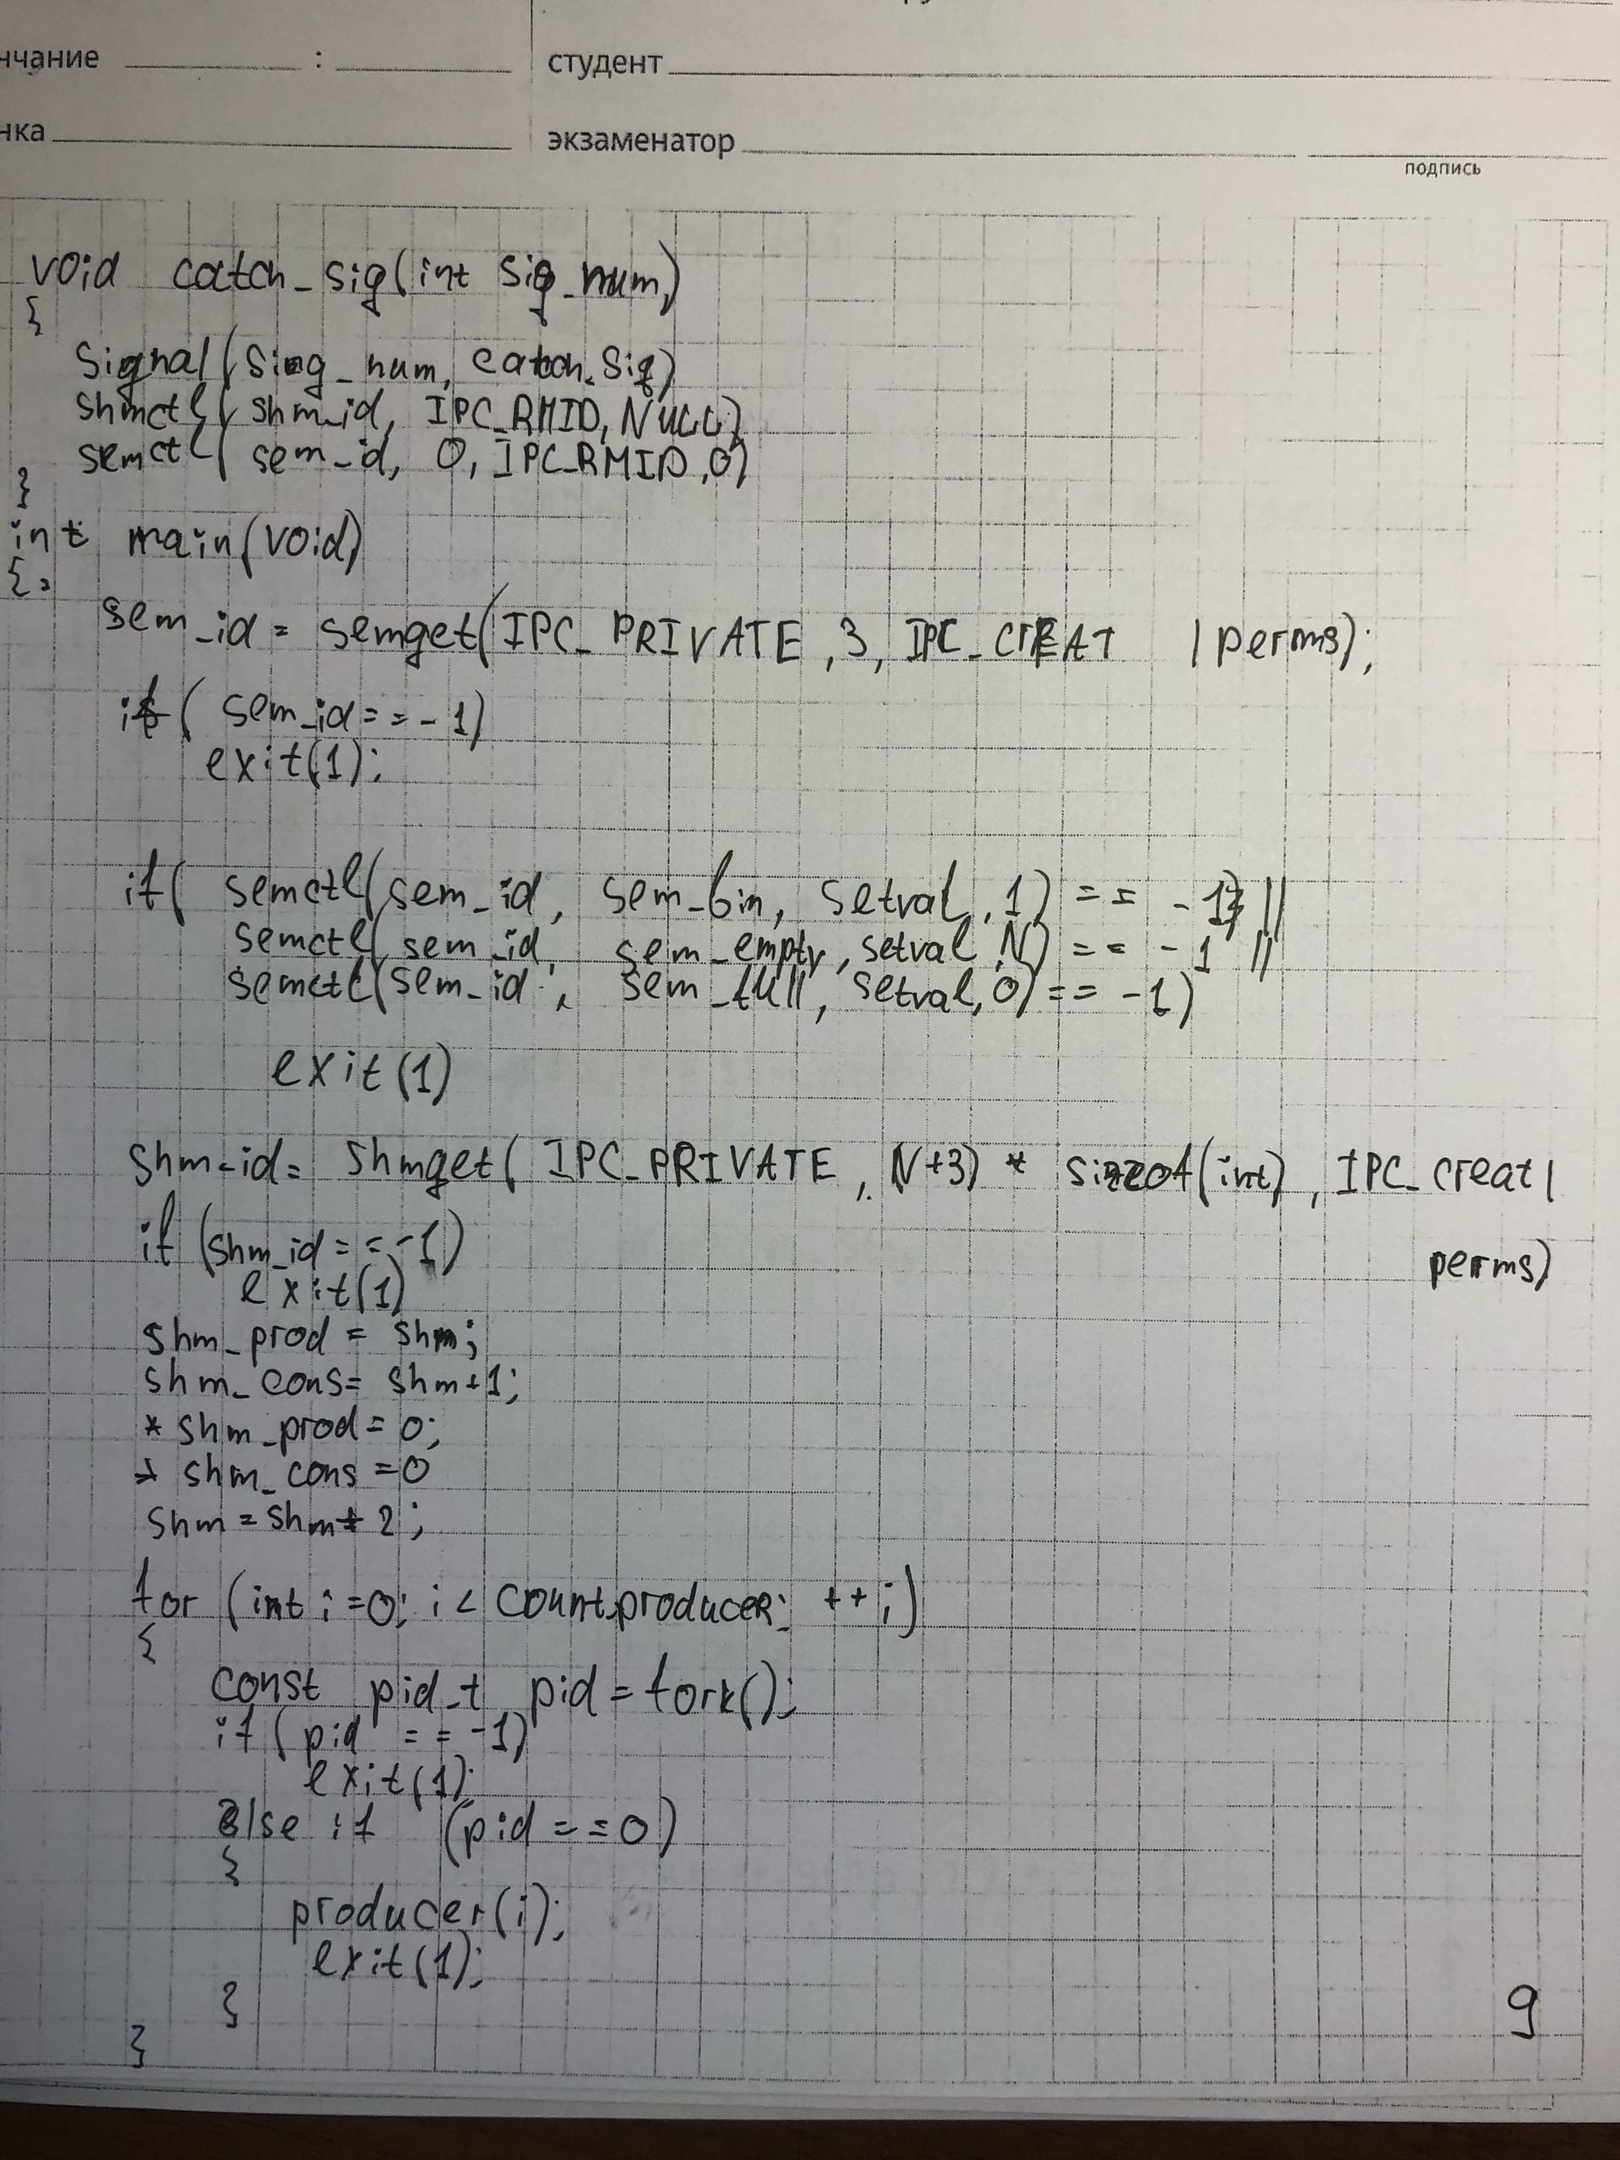 нчание : студент
нка экзаменатор
подпись
void catch_sig(int sig_num)
{
Signal(Sing_num, catch_Sig)
Shmctl(shm_id, IPC_RMID, NULL)
semctl(sem_id, 0, IPC_RMID, 0)
}
int main(void)
{
sem_id = semget(IPC_PRIVATE, 3, IPC_CREAT | perms);
if( sem_id == -1)
exit(1);
if( semctl(sem_id, sem_bin, setval, 1) == -1 ||
semctl(sem_id, sem_empty, setval, N) == -1 ||
semctl(sem_id, sem_full, setval, 0) == -1)
exit(1)
shm_id = shmget( IPC_PRIVATE, (N+3) * sizeof(int), IPC_creat |
perms)
if (shm_id == -1)
exit(1)
shm_prod = shm;
shm_cons = shm+1;
* shm_prod = 0;
* shm_cons = 0
shm = shm + 2;
for (int i=0; i < count_producer; ++i)
{
const pid_t pid = fork();
if( pid == -1)
exit(1);
else if (pid == 0)
{
producer(i);
exit(1);
}
}
9